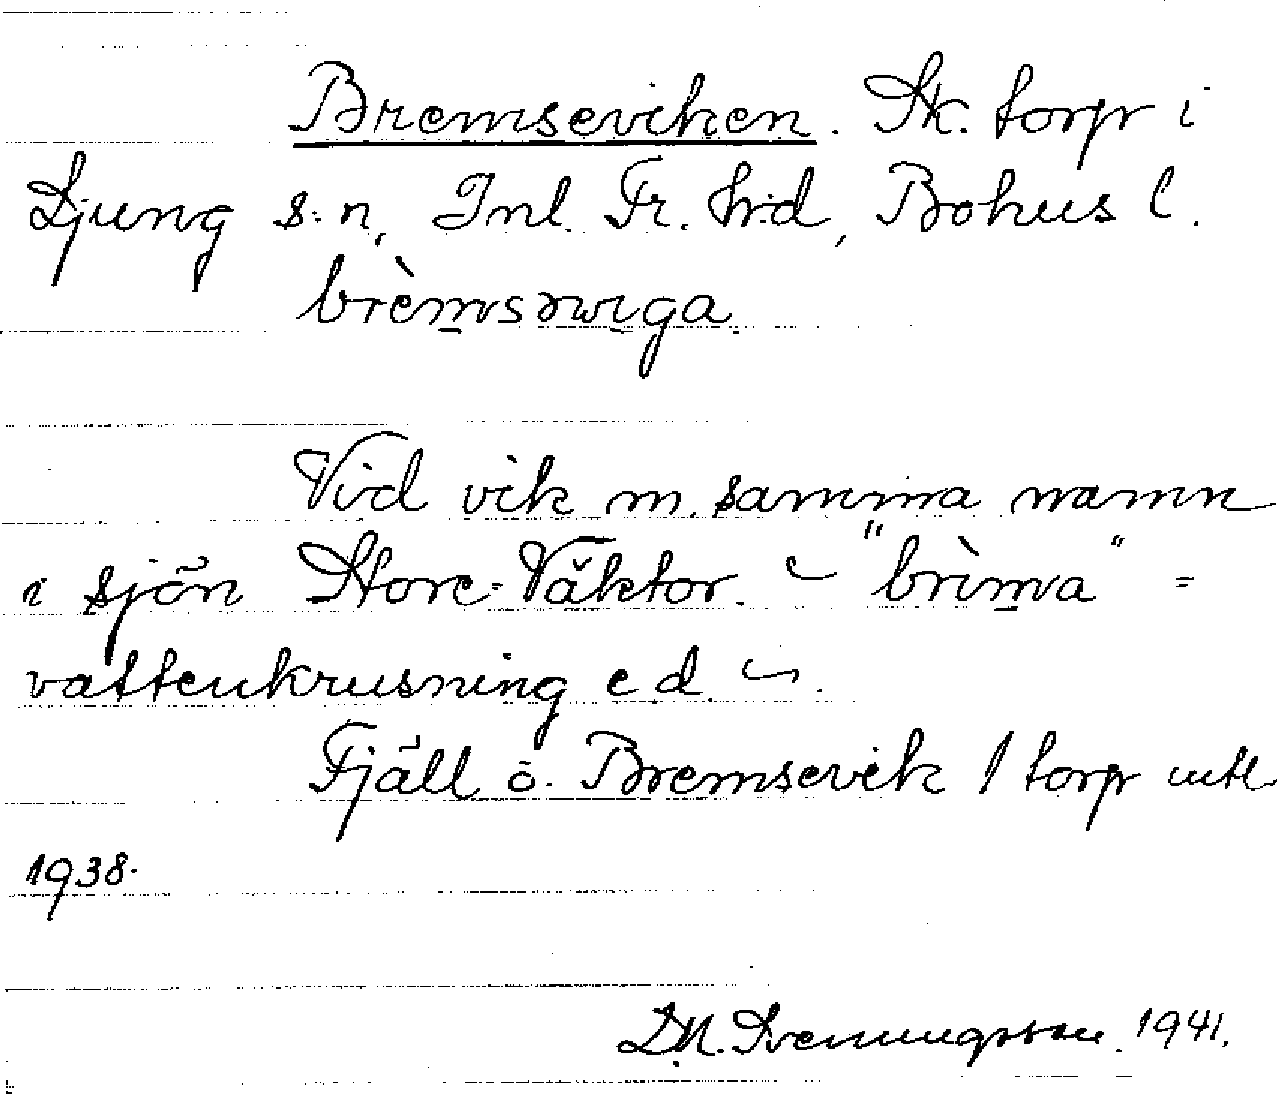 Bremseviken. Sk. torp i
Ljung s:n, Inl. Fr. h:d, Bohus l.
brèmsəvɩga.
Vid vik m. samma namn
i sjön Store-Väktor. ~ "brìma" =
vattenkrusning e d ~.
Fjäll o. Bremsevik 1 torp utl
1938.
D.N. Svenningsson. 1941.